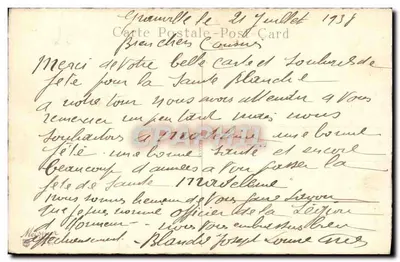 Granville le 21 Juillet 1938
Carte Postale - Post Card
Bien chers Cousins
Merci de votre belle carte et souhaits de
fête pour la Sainte Blanche
à notre tour nous avons attendu a vous
remercier un peu tard mais nous
souhaitons a une bonne
fête une bonne santé et encore
beaucoup d'années a vous passer la
fête de Sainte Madeleine
nous sommes heureux de vous faire savoir
que nommé officier de la Légion
d'Honneur nous vous embrassons bien
affectueusement. Blanche Joseph